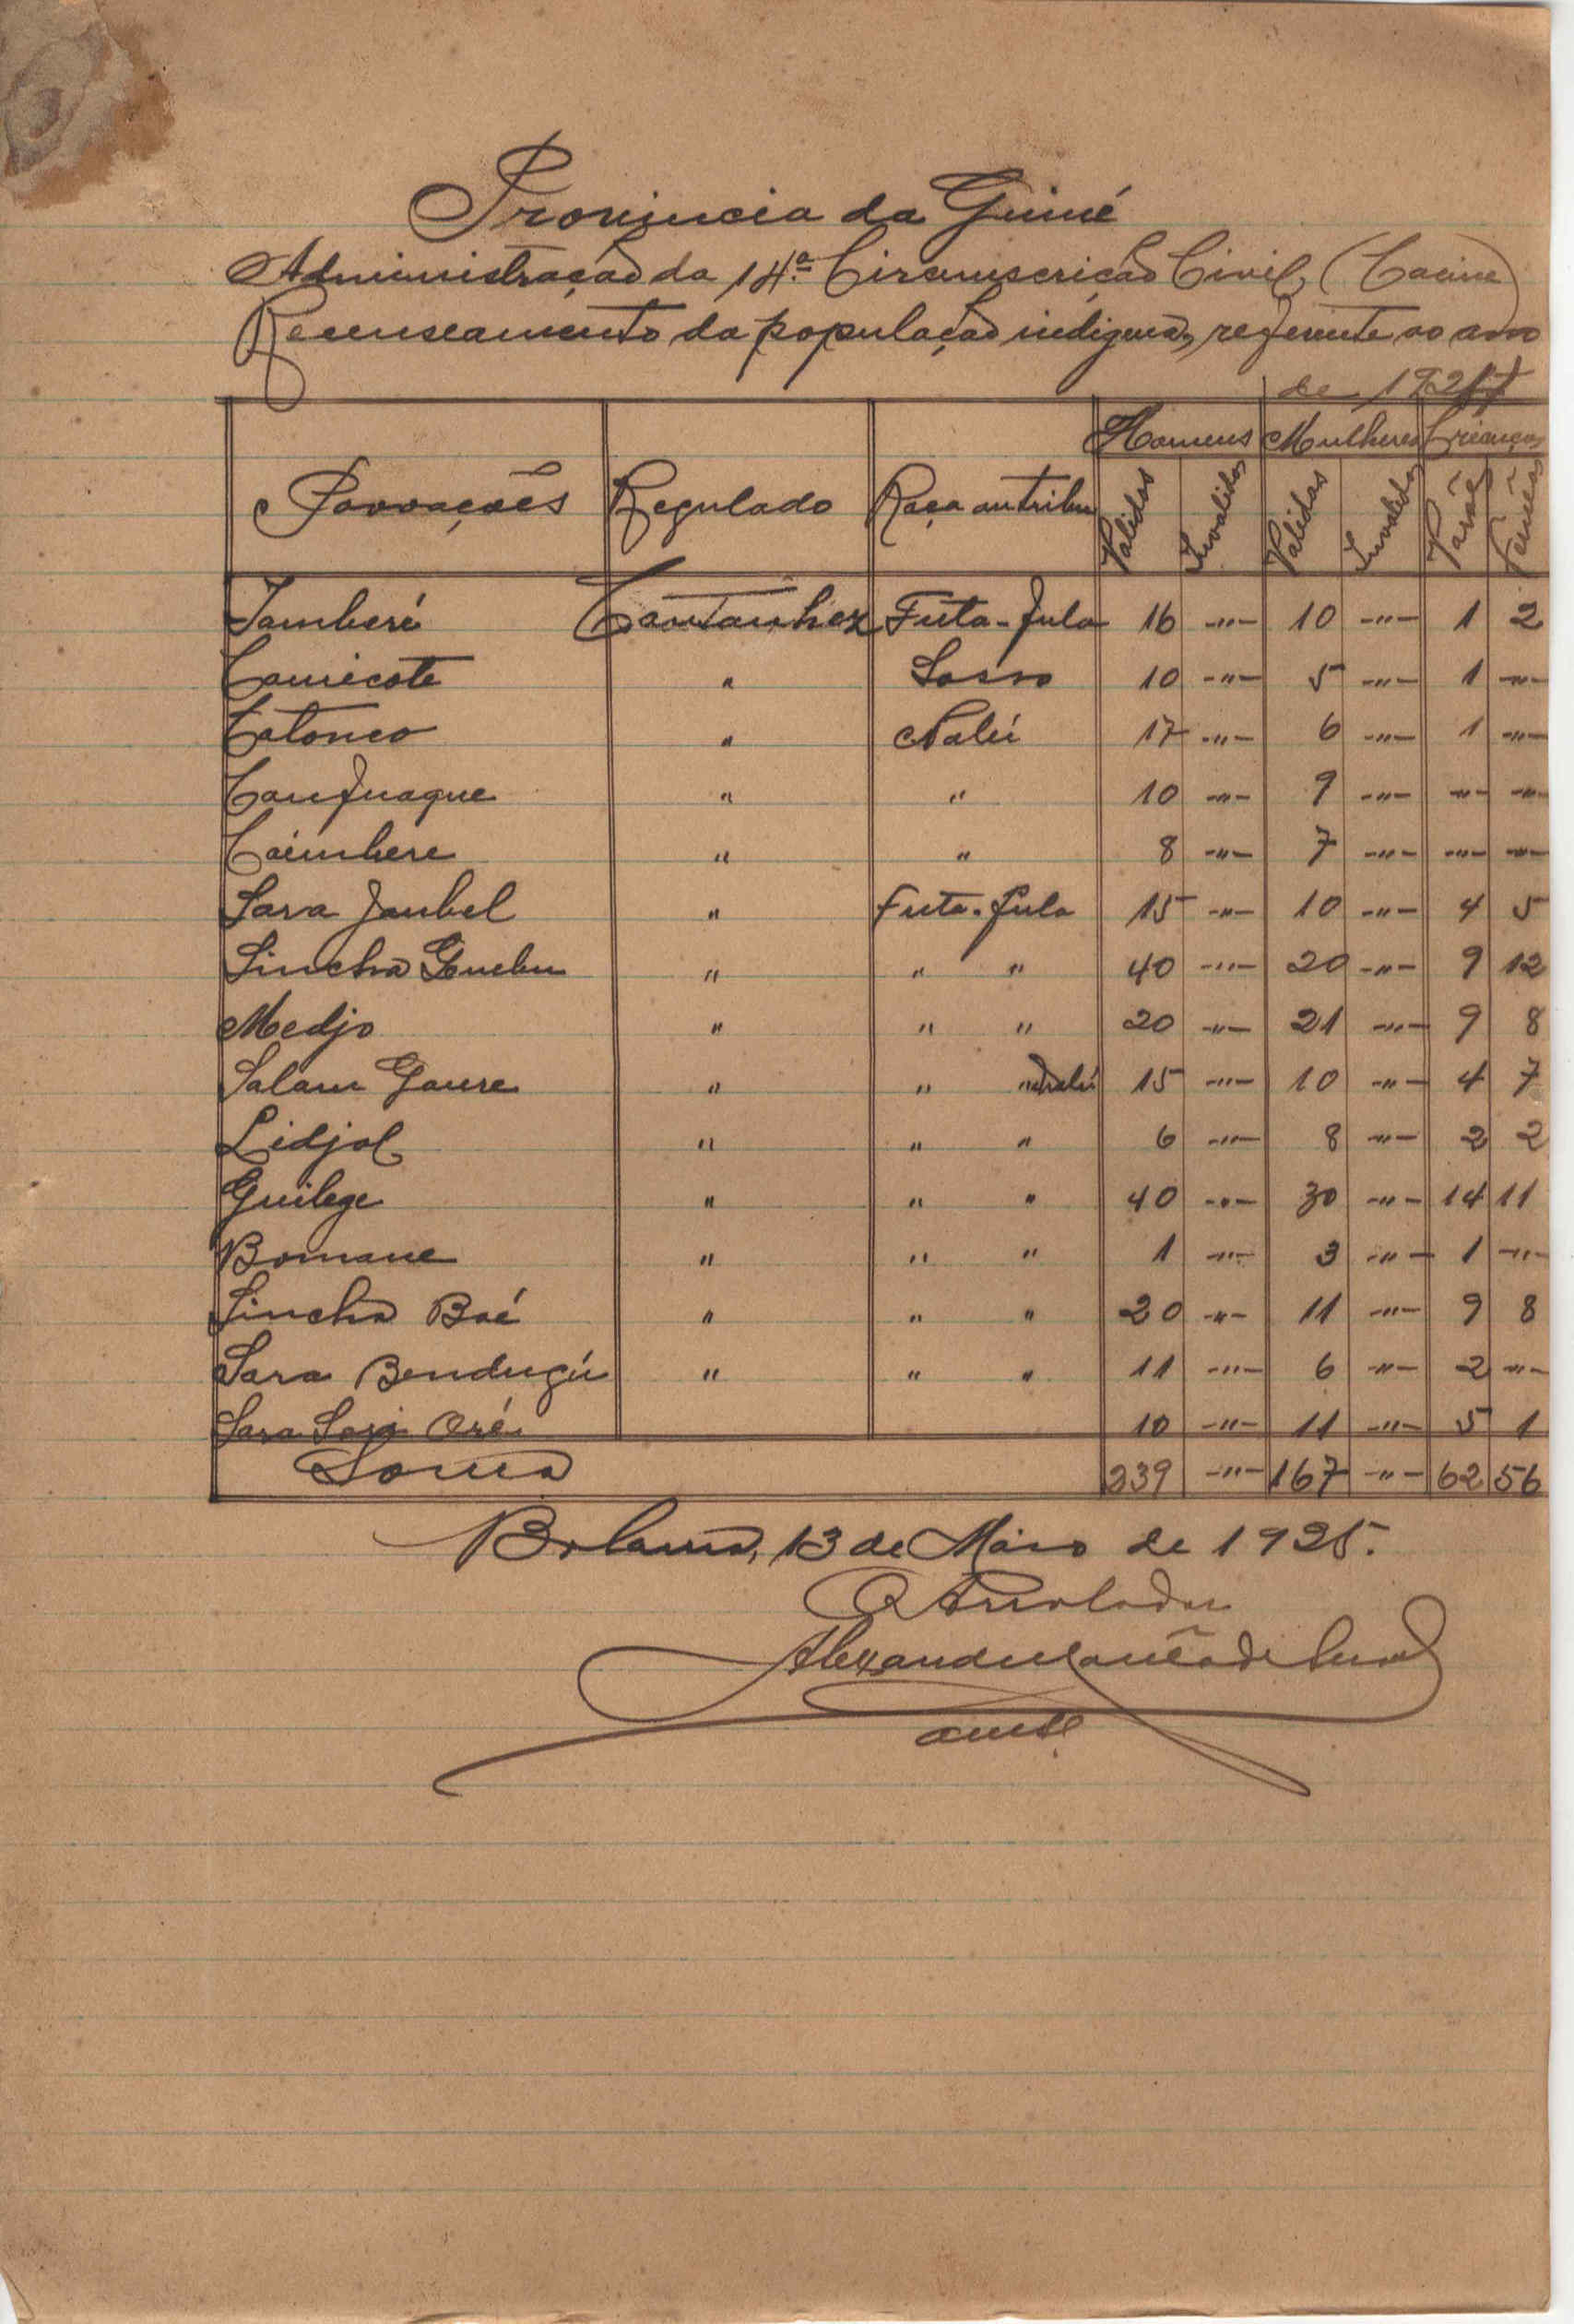 Provincia da Guiné
Administração da 14.ª Circunscrição Civil, (Cacine)
Recenseamento da população indigena, referente ao ano
de 192
Homens Mulheres Crianças
Povoações Regulado Raça ou tribu Validos Invalidos Validas Invalidas Varões Femeas
Jamberé Cantanhez Futa-Fula 16 -"- 10 -"- 1 2
Camecote " Sosso 10 -"- 5 -"- 1 -"-
Catonco " Nalú 17 -"- 6 -"- 1 -"-
Canfuaque " " 10 -"- 9 -"- -"- -"-
Caimbere " " 8 -"- 7 -"- -"- -"-
Sara Jaubel " Futa-Fula 15 -"- 10 -"- 4 5
Sincha " " " 40 -"- 20 -"- 9 12
Medjo " " " 20 -"- 21 -"- 9 8
Salam Gaure " " " Nalú 15 -"- 10 -"- 4 7
Lidjol " " " 6 -"- 8 -"- 2 2
Guilege " " " 40 -"- 30 -"- 14 11
Bomane " " " 1 -"- 3 -"- 1 -"-
Sincha Boé " " " 20 -"- 11 -"- 9 8
Sara Bendugú " " " 11 -"- 6 -"- 2 -"-
Sara 10 -"- 11 -"- 5 1
Soma 239 -"- 167 -"- 62 56
Bolama, 13 de Maio de 1925.
O Arrolador
Alexandre de